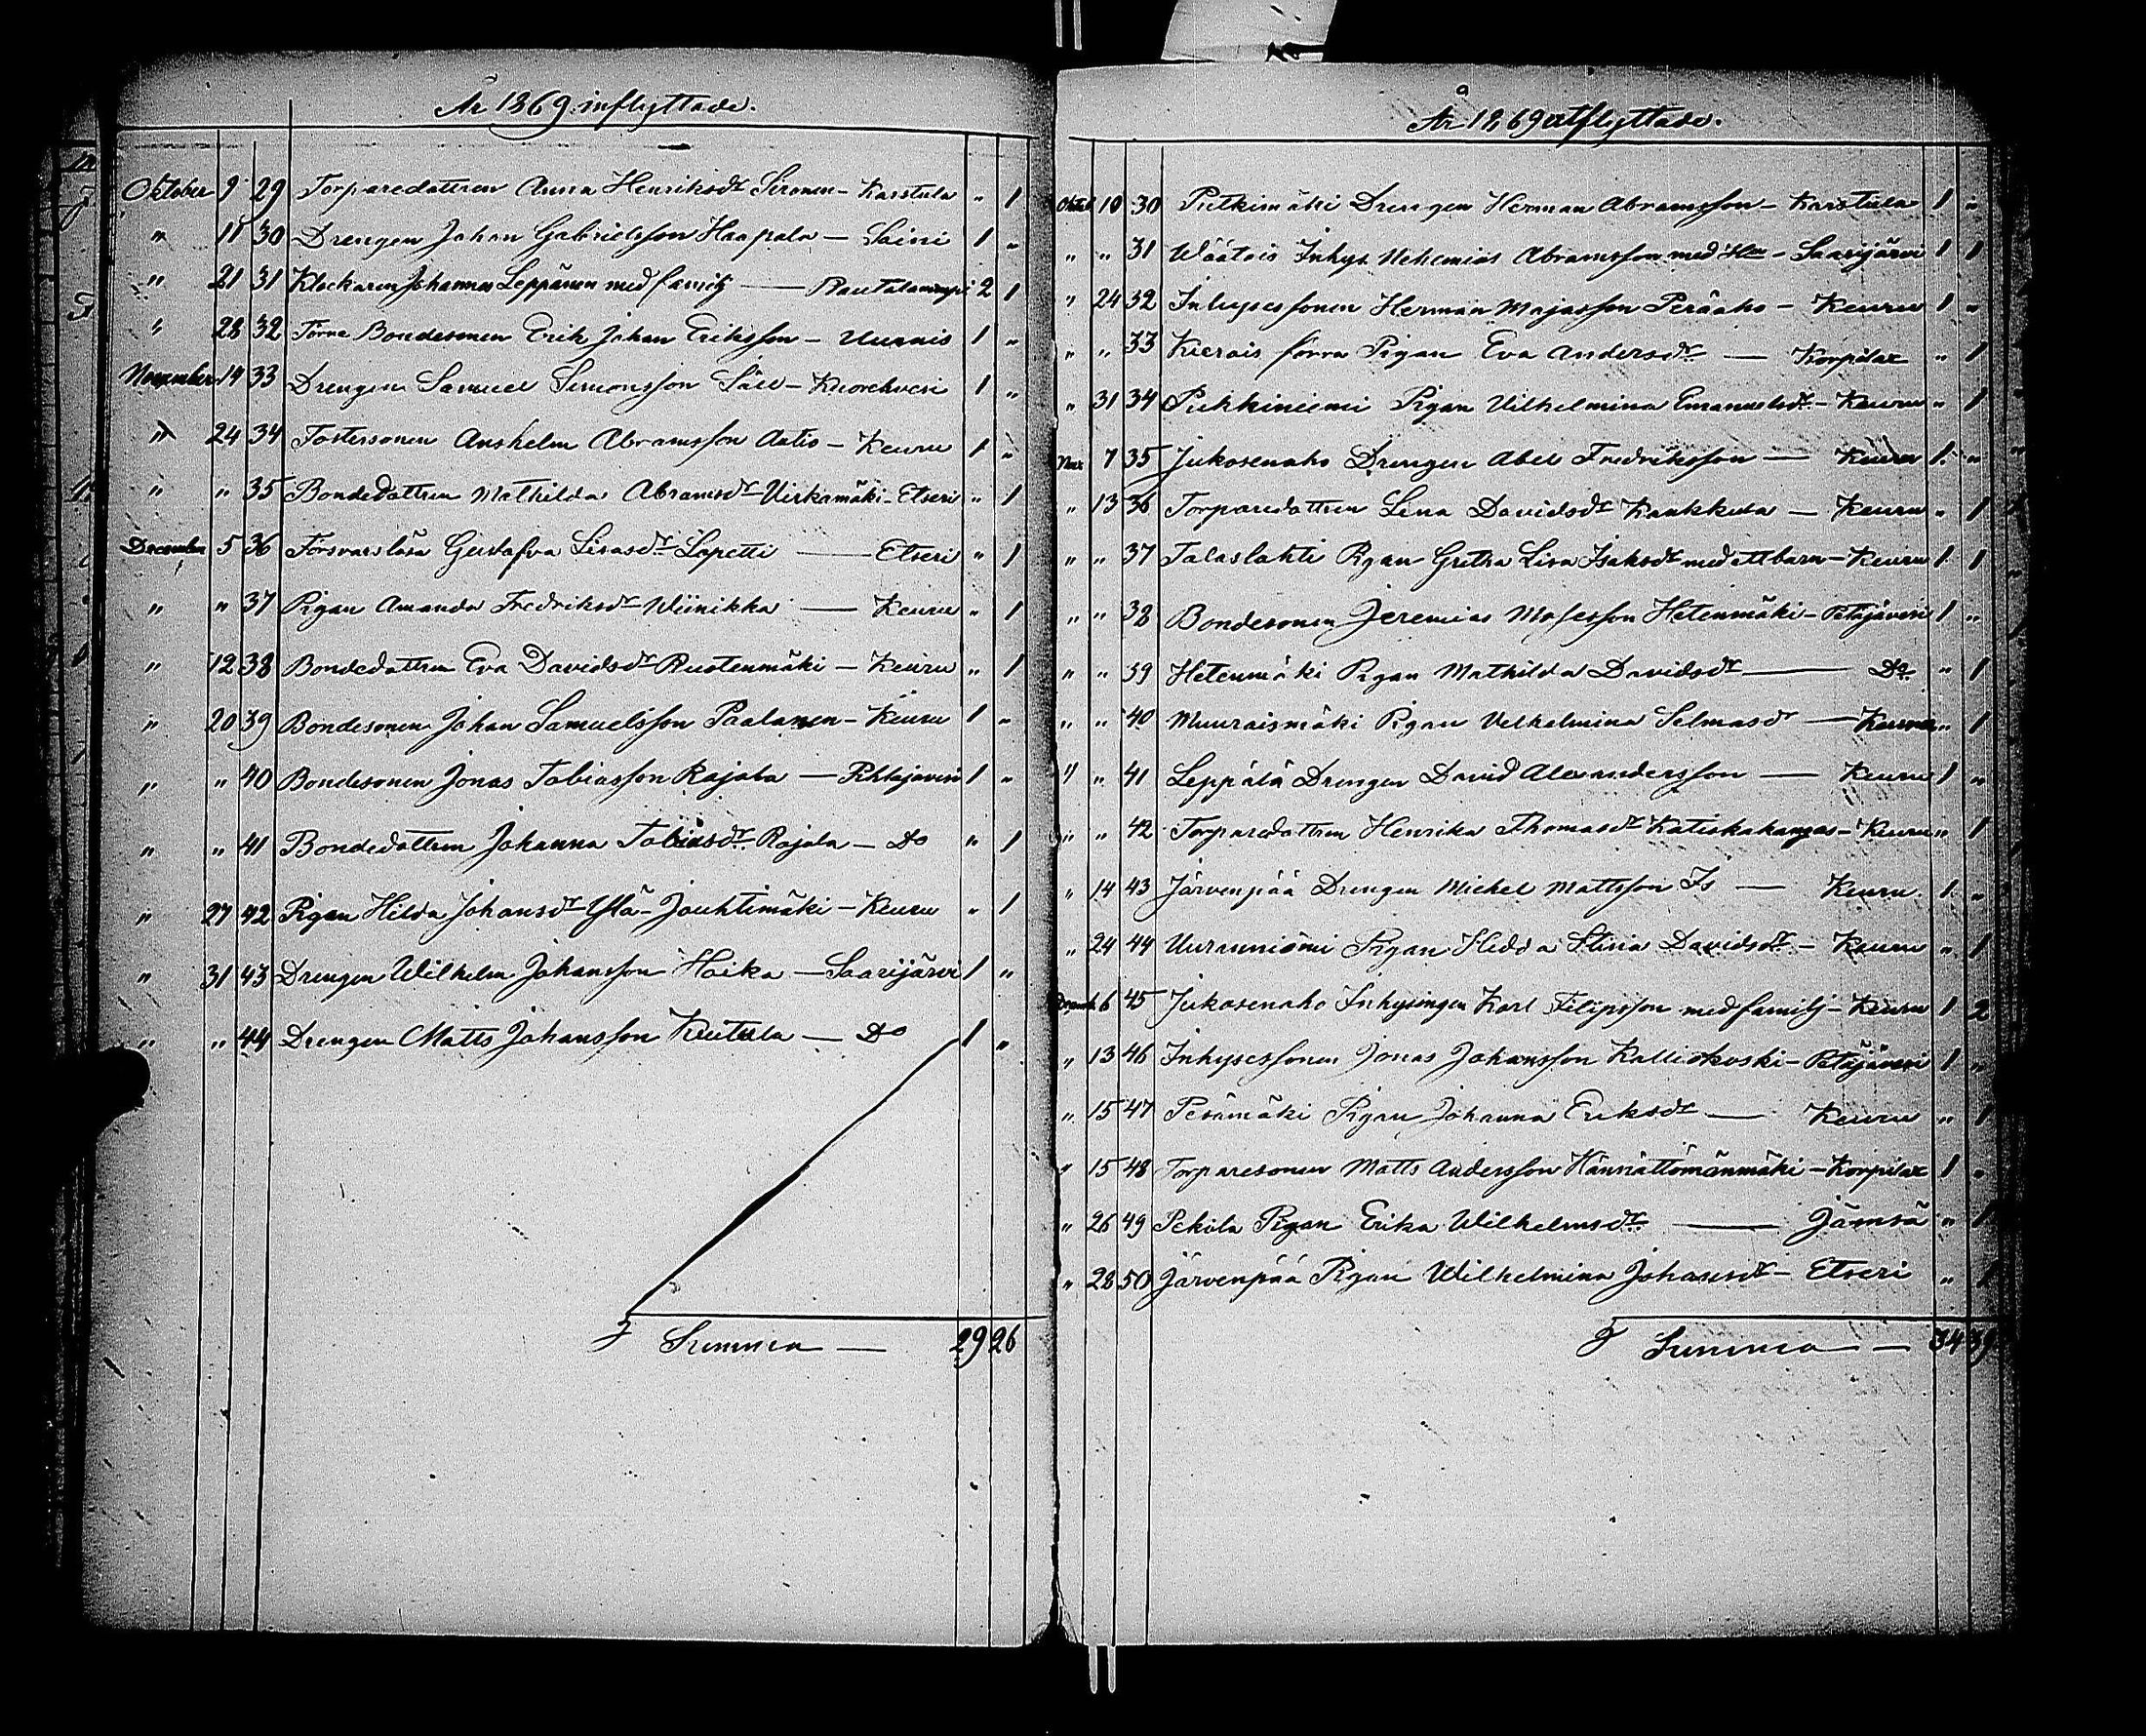 År 1869 inflyttade.
Oktober 9 29 Torparedottren Anna Henriksdr Sironen - Karstula " 1
" 11 30 Drengen Johan Gabrielsson Haapala - Saini 1 "
" 21 31 Klockaren Johannes Leppänen med familj - Rautalampi 2 1
" 28 32 Förre Bondesonen Erik Johan Eriksson - Uurais 1 "
November 14 33 Drengen Samuel Simonsson Säll - Kuorehvesi 1 "
" 24 34 Fostersonen Anshelm Abramsson Autio - Keuru 1 "
" " 35 Bondedottren Mathilda Abramsdr Virkamäki - Etseri " 1
December 5 36 Försvarslösa Gustafva Lisasdr Lapetti - Etseri " 1
" " 37 Pigan Amanda Fredriksdr Wiinikka - Keuru " 1
" 12 38 Bondedottren Eva Davidsdr Rustenmäki - Keuru " 1
" 20 39 Bondesonen Johan Samuelsson Paalanen - Keuru 1 "
" " 40 Bondesonen Jonas Tobiasson Rajala - Pihlajavesi 1 "
" " 41 Bondedottren Johanna Tobiasdr Rajala - Do " 1
" 27 42 Pigan Hilda Johansdr Ylä-Jouhtimäki - Keuru " 1
" 31 43 Drengen Wilhelm Johansson Hoika - Saarijärvi 1 "
" " 44 Drengen Matts Johansson Kuutula - Do 1 "
Summa - 29 26
År 1869 utflyttade.
Oktob 10 30 Putkimäki Drengen Herman Abramsson - Karstula 1 "
" " 31 Wäätäis Inhys Nehemias Abramsson med Hu - Saarijärvi 1 1
" 24 32 Inhysessonen Herman Majasson Peräaho - Keuru 1 "
" " 33 Kierais förra Pigan Eva Andersdr - Korpilax " 1
" 31 34 Pukkiniemi Pigan Vilhelmina Emanuelsdr - Keuru " 1
Nov 7 35 Jukosenaho Drengen Abel Fredriksson - Keuru 1 "
" 13 36 Torparedottren Lena Davidsdr Kaukkula - Keuru " 1
" " 37 Talaslahti Pigan Gretha Lisa Isaksdr med ett barn - Keuru 1 1
" " 38 Bondesonen Jeremias Mosesson Hetenmäki - Petäjävesi 1 "
" " 39 Hetenmäki Pigan Mathilda Davidsdr - Do " 1
" " 40 Muuraismäki Pigan Velhelmina Selmasdr - Keuru " 1
" " 41 Leppälä Drengen David Alexandersson - Keuru 1 "
" " 42 Torparedottren Henrika Thomasdr Katiskakangas - Keuru " 1
" 14 43 Järvenpää Drengen Michel Mattsson Is - Keuru 1 "
" 24 44 Uuranniemi Pigan Hedda Stina Davidsdr - Keuru " 1
Decemb 6 45 Jukosenaho Inhysingen Karl Filipsson med familj - Keuru 1 2
" 13 46 Inhysessonen Jonas Johansson Kalliokoski - Petäjävesi 1 "
" 15 47 Perämäki Pigan Johanna Eriksdr - Keuru " 1
" 15 48 Torparesonen Matts Andersson Hännättömänmäki - Korpilax 1 "
" 26 49 Pekila Pigan Erika Wilhelmsdr - Jämsä " 1
" 28 50 Järvenpää Pigan Wilhelmina Johansdr - Etseri " 1
Summa - 34 39